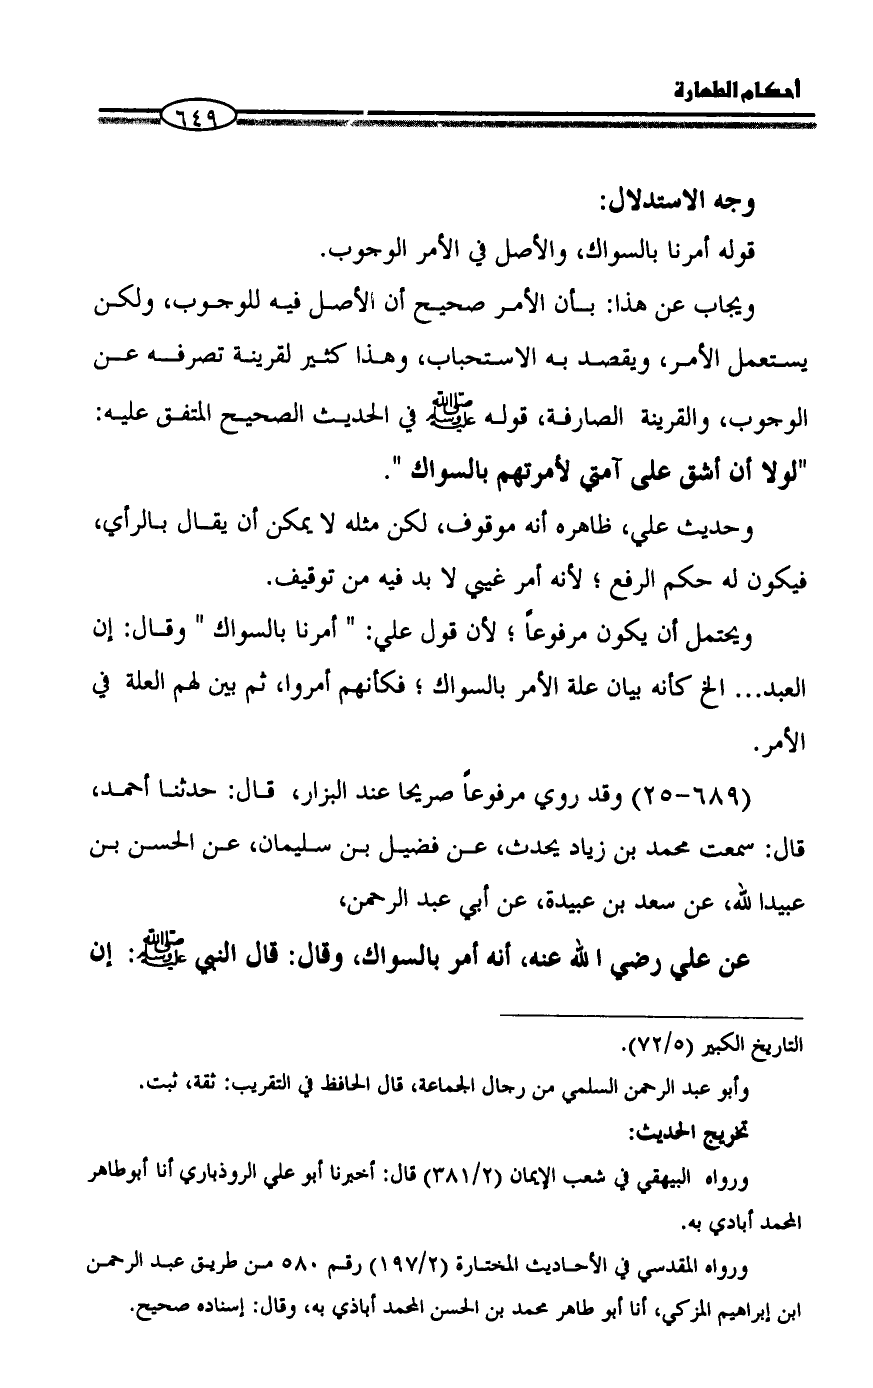 أحكام الطهارة
٦٤٩
وجه الاستدلال:
قوله أمرنا بالسواك، والأصل في الأمر الوجوب.
ويجاب عن هذا: بأن الأمر صحيح أن الأصل فيه للوجوب، ولكن
يستعمل الأمر، ويقصد به الاستحباب، وهذا كثير لقرينة تصرفه عن
الوجوب، والقرينة الصارفة، قوله ﷺ في الحديث الصحيح المتفق عليه:
"لولا أن أشق على آمتي لأمرتهم بالسواك ".
وحديث علي، ظاهره أنه موقوف، لكن مثله لا يمكن أن يقال بالرأي،
فيكون له حكم الرفع ؛ لأنه أمر غيبي لا بد فيه من توقيف.
ويحتمل أن يكون مرفوعاً ؛ لأن قول علي: " أمرنا بالسواك " وقال: إن
العبد... الخ كأنه بيان علة الأمر بالسواك ؛ فكأنهم أمروا، ثم بين لهم العلة في
الأمر.
(٦٨٩-٢٥) وقد روي مرفوعاً صريحا عند البزار، قال: حدثنا أحمد،
قال: سمعت محمد بن زياد يحدث، عن فضيل بن سليمان، عن الحسن بن
عبيدا لله، عن سعد بن عبيدة، عن أبي عبد الرحمن،
عن علي رضي ا لله عنه، أنه أمر بالسواك، وقال: قال النبي ﷺ: إن
التاريخ الكبير (٧٢/٥).
وأبو عبد الرحمن السلمي من رجال الجماعة، قال الحافظ في التقريب: ثقة، ثبت.
تخريج الحديث:
ورواه البيهقي في شعب الإيمان (٣٨١/٢) قال: أخبرنا أبو علي الروذباري أنا أبوطاهر
المحمد أبادي به.
ورواه المقدسي في الأحاديث المختارة (١٩٧/٢) رقم ٥٨٠ من طريق عبد الرحمن
ابن إبراهيم المزكي، أنا أبو طاهر محمد بن الحسن المحمد أباذي به، وقال: إسناده صحيح.